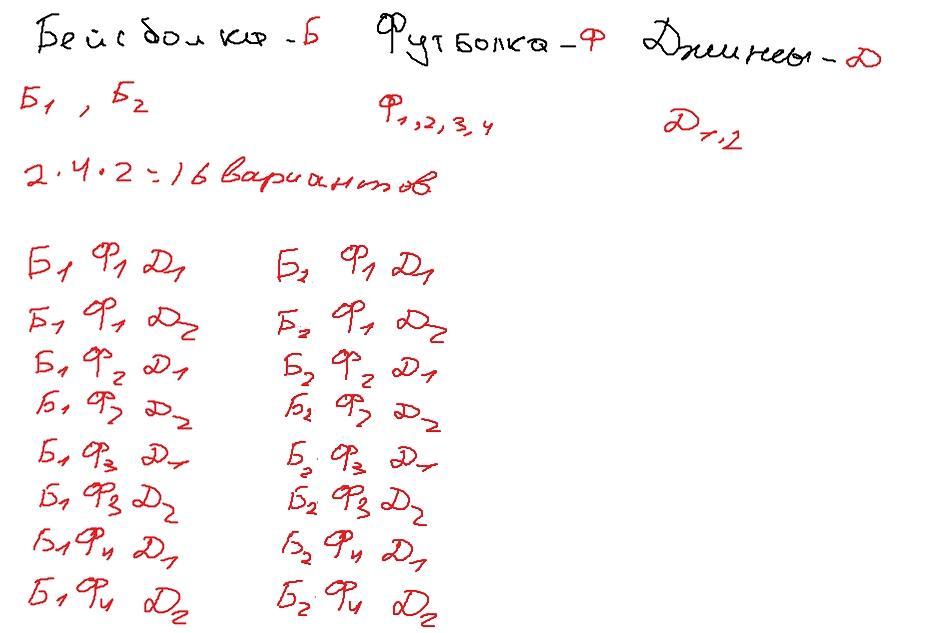 Бейсболка - Б Футболка - Ф Джинсы - Д
Б1, Б2 Ф1,2,3,4 Д1,2
2·4·2=16 вариантов
Б1 Ф1 Д1 Б2 Ф1 Д1
Б1 Ф1 Д2 Б2 Ф1 Д2
Б1 Ф2 Д1 Б2 Ф2 Д1
Б1 Ф2 Д2 Б2 Ф2 Д2
Б1 Ф3 Д1 Б2 Ф3 Д1
Б1 Ф3 Д2 Б2 Ф3 Д2
Б1 Ф4 Д1 Б2 Ф4 Д1
Б1 Ф4 Д2 Б2 Ф4 Д2